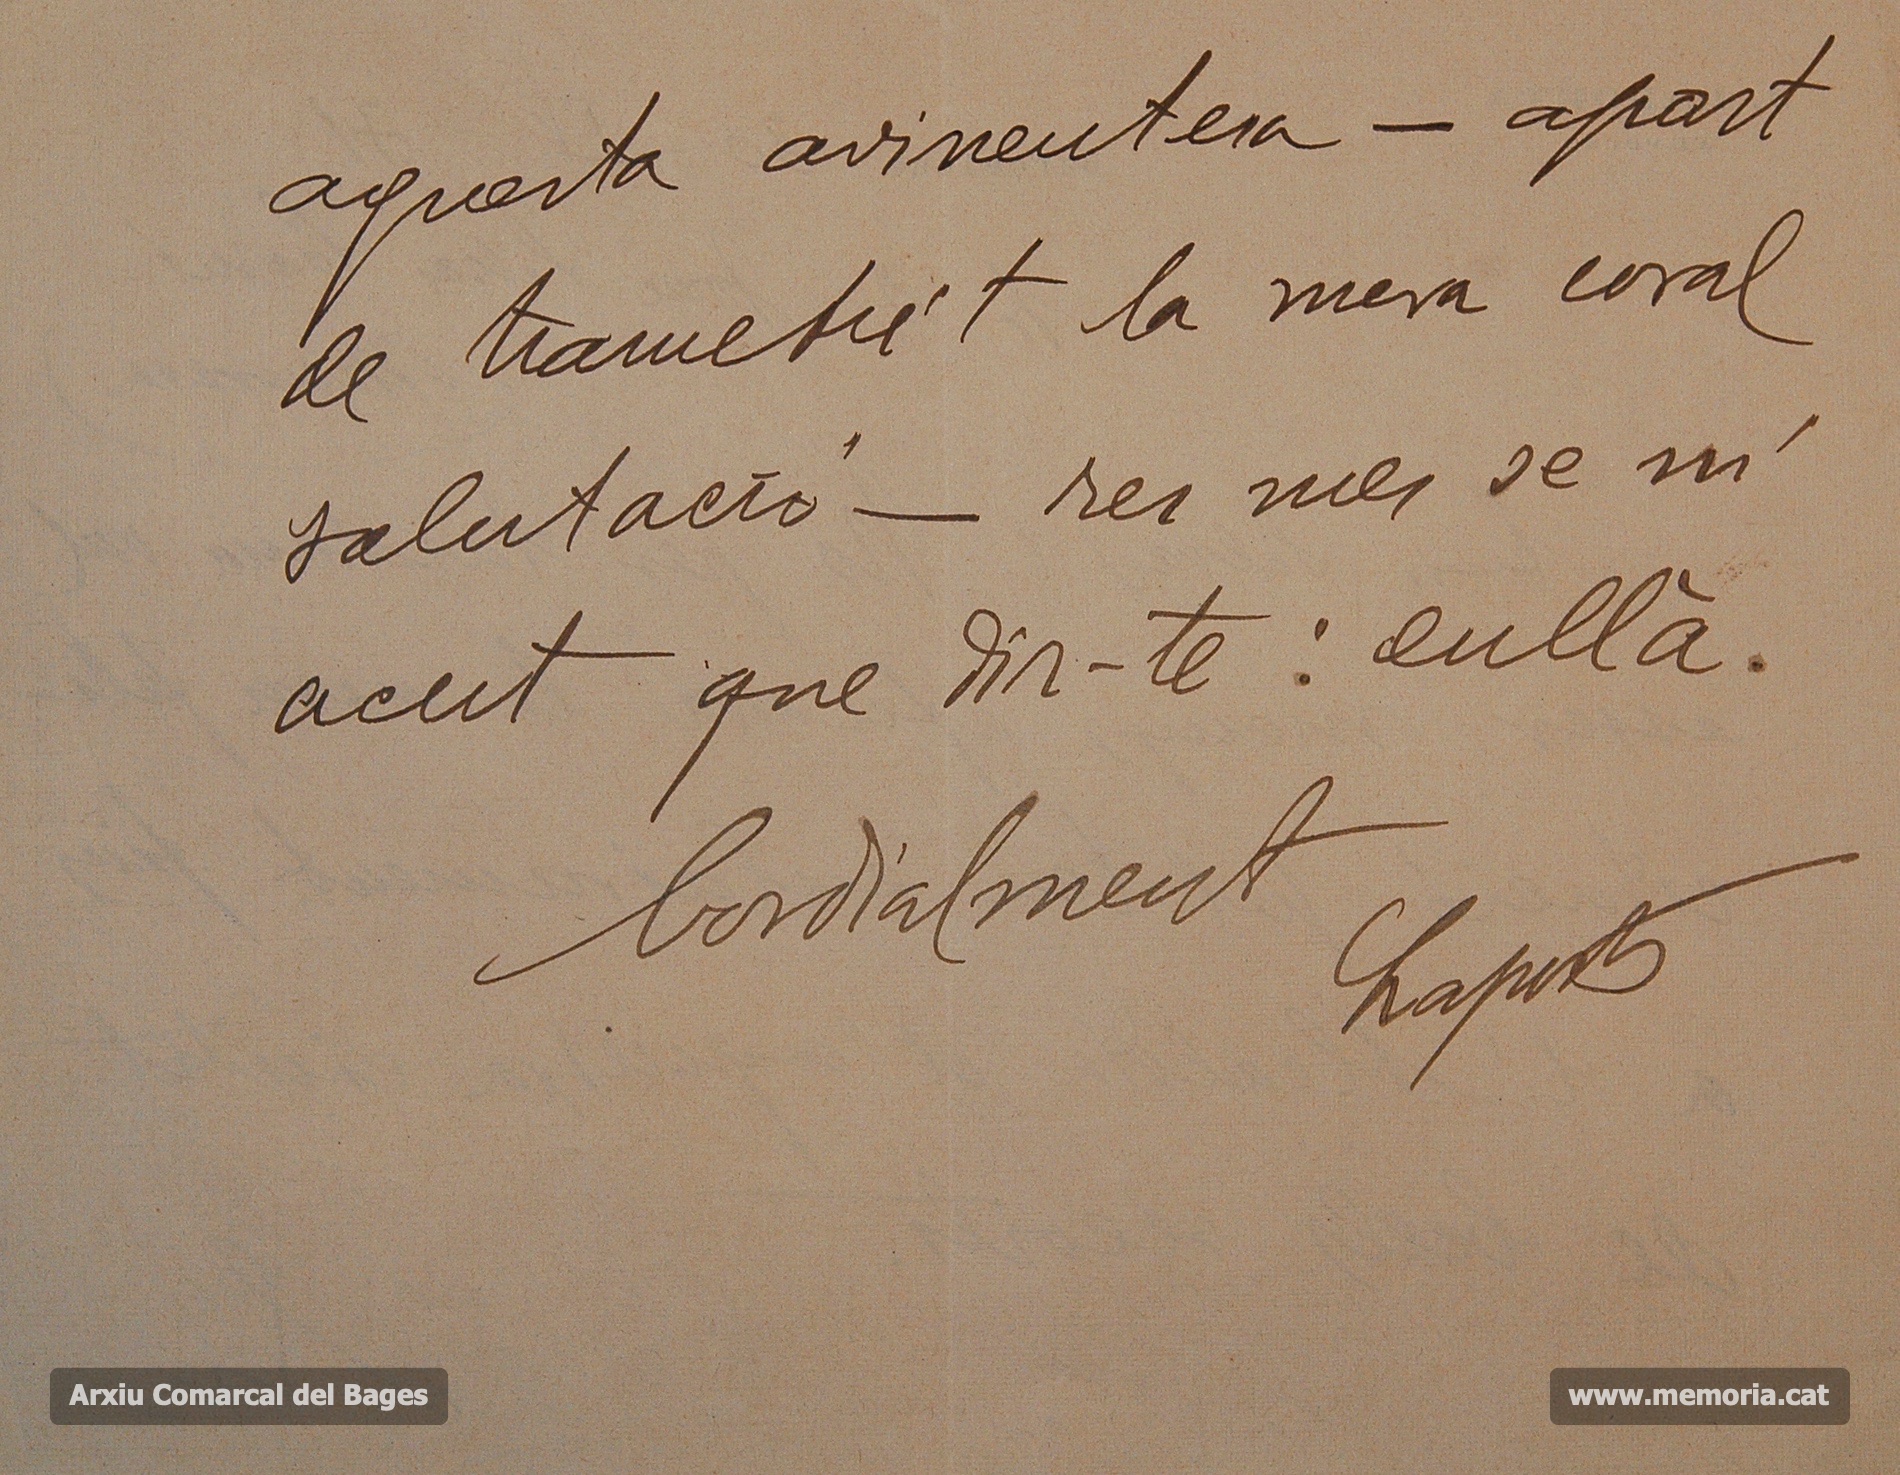 aquesta avinentesa — apart
de trametre't la meva coral
salutació — res mes se m'
acut que dir-te : enllà.
Cordialment
Arxiu Comarcal del Bages
www.memoria.cat